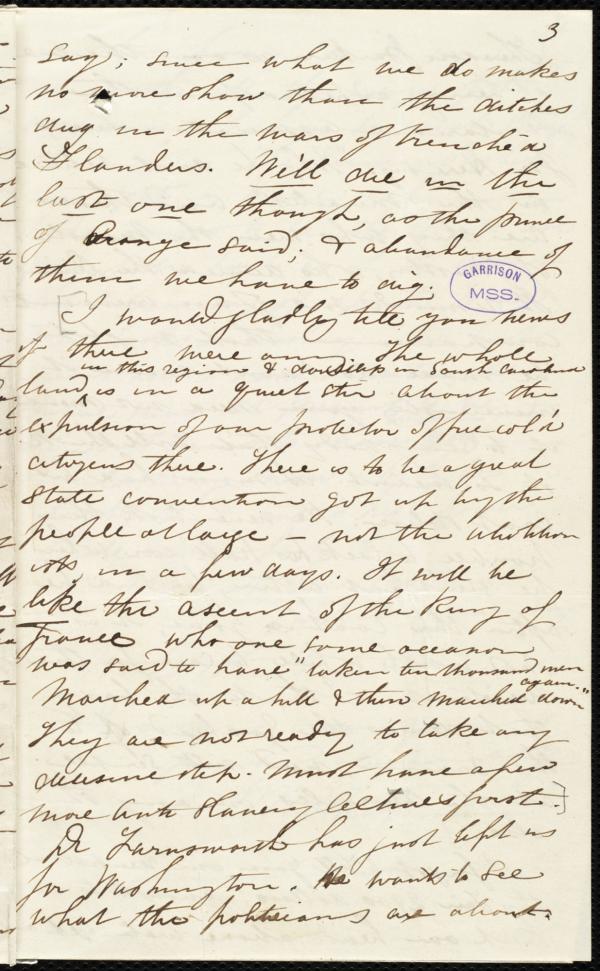 3
say; since what we do makes
no more show than the ditches
dug in the wars of trenched
Flanders. We'll die in the
last one though, as the prince
of Orange said; & abundance of
them we have to dig.
GARRISON
MSS.
[I would gladly tell you news
if there were any. The whole
in this region & doubtless in South Carolina
land ^ is in a quiet stir about the
expulsion of our protector of free col'd
citizens there. There is to be a great
State convention got up by the
people at large - not the abolition
ists, in a few days. It will be
like the ascent of the King of
France who one some occasion
was said to have "taken ten thousand men
again."
Marched up a hill & then marched down
They are not ready to take any
decisive step. Must have a few
more Anti Slavery lectures first.]
Dr Farnsworth has just left us
for Washington. He wants to see
what the politicians are about.